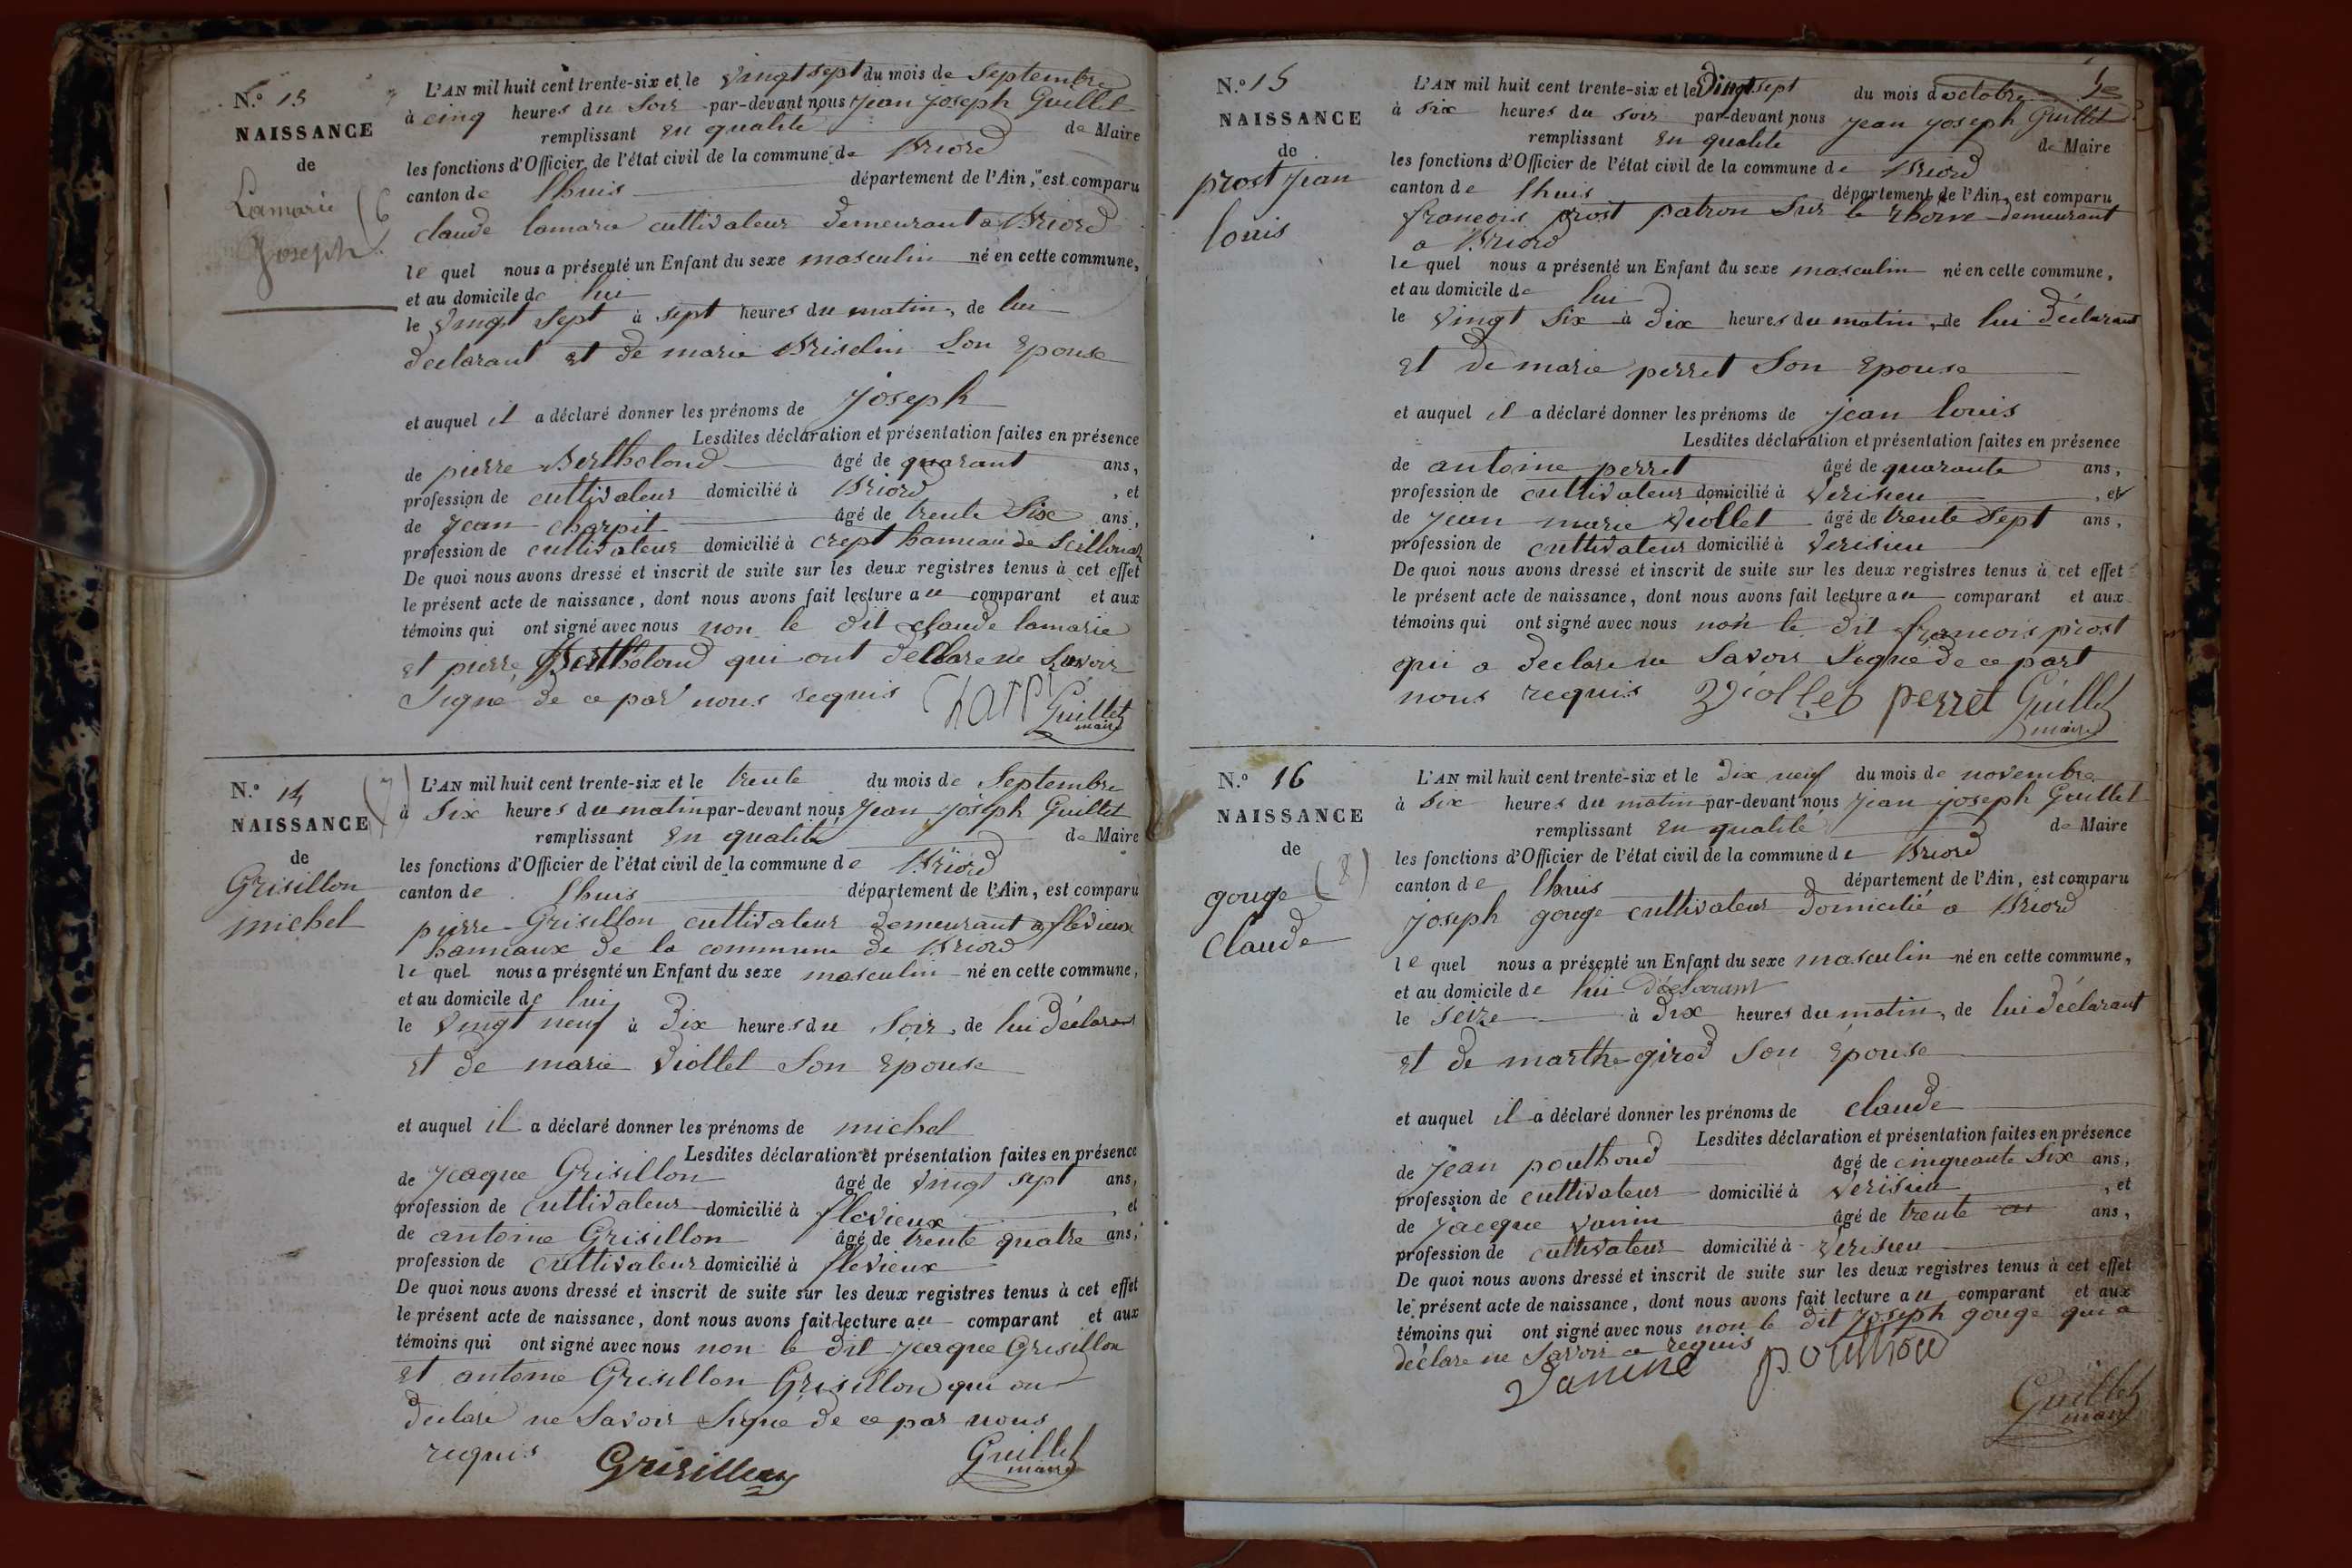 N.º 13
NAISSANCE
de
Lamarie (6
Joseph
L'AN mil huit cent trente-six et le vingt sept du mois de Septembre
à cinq heures du Soir par-devant nous Jean Joseph Guillet
remplissant en qualité de Maire
les fonctions d'Officier de l'état civil de la commune de Briord
canton de lhuis département de l'Ain, est comparu
claude lamarie cultivateur demeurant a Briord
le quel nous a présenté un Enfant du sexe masculin né en cette commune,
et au domicile de lui
le vingt Sept à sept heures du matin, de lui
declarant et de marie Briselin Son Epouse
et auquel il a déclaré donner les prénoms de Joseph
Lesdites déclaration et présentation faites en présence
de pierre Bertholond âgé de quarant ans,
profession de cultivateur domicilié à Briord, et
de Jean charpit âgé de trente Six ans,
profession de cultivateur domicilié à crept hameau de Seillonaz
De quoi nous avons dressé et inscrit de suite sur les deux registres tenus à cet effet
le présent acte de naissance, dont nous avons fait lecture au comparant et aux
témoins qui ont signé avec nous non le dit claude lamarie
et pierre Bertholond qui ont declare ne Savoir
Signe de ce par nous requis Charpi Guillet
maire
N.º 14 (7)
NAISSANCE
de
Grisillon
michel
L'AN mil huit cent trente-six et le trente du mois de Septembre
à Six heures du matin par-devant nous Jean Joseph Guillet
remplissant en qualité de Maire
les fonctions d'Officier de l'état civil de la commune de Briord
canton de lhuis département de l'Ain, est comparu
pierre Grisillon cultivateur demeurant a flevieux
hameaux de la commune de Briord
le quel nous a présenté un Enfant du sexe masculin né en cette commune,
et au domicile de lui
le vingt neuf à Dix heures du Soir, de lui déclarant
et de marie Viollet Son Epouse
et auquel il a déclaré donner les prénoms de michel
Lesdites déclaration et présentation faites en présence
de Jacque Grisillon âgé de vingt sept ans,
profession de cultivateur domicilié à flevieux, et
de antoine Grisillon âgé de trente quatre ans,
profession de cultivateur domicilié à flevieux
De quoi nous avons dressé et inscrit de suite sur les deux registres tenus à cet effet
le présent acte de naissance, dont nous avons fait lecture au comparant et aux
témoins qui ont signé avec nous non le dit Jacque Grisillon
et antoine Grisillon Grisillon qui on
declare ne Savoir Signe de ce par nous
requis Grisillon Guillet
maire
N.º 15
NAISSANCE
de
prost Jean
louis
L'AN mil huit cent trente-six et le vingt sept du mois d octobre
à six heures du soir par-devant nous Jean Joseph Guillet
remplissant en qualite de Maire
les fonctions d'Officier de l'état civil de la commune de Briord
canton de lhuis département de l'Ain, est comparu
francois prost patron Sur le rhone demeurant
a Briord
le quel nous a présenté un Enfant du sexe masculin né en cette commune,
et au domicile de lui
le vingt Six à Dix heures du matin, de lui déclarant
et de marie perret Son Epouse
et auquel il a déclaré donner les prénoms de jean louis
Lesdites déclaration et présentation faites en présence
de antoine perret âgé de quarante ans,
profession de cultivateur domicilié à Verisieu, et
de Jean marie Viollet âgé de trente Sept ans,
profession de cultivateur domicilié à Verisieu
De quoi nous avons dressé et inscrit de suite sur les deux registres tenus à cet effet
le présent acte de naissance, dont nous avons fait lecture au comparant et aux
témoins qui ont signé avec nous non le dit francois prost
qui a declare ne Savoir Signe de ce part
nous requis Viollet perret Guillet
maire
N.º 16
NAISSANCE
de
gouge (8)
Claude
L'AN mil huit cent trente-six et le dix neuf du mois de novembre
à six heures du matin par-devant nous Jean joseph Guillet
remplissant en qualité de Maire
les fonctions d'Officier de l'état civil de la commune de Briord
canton de lhuis département de l'Ain, est comparu
Joseph gouge cultivateur domicilié a Briord
le quel nous a présenté un Enfant du sexe masculin né en cette commune,
et au domicile de lui déclarant
le seize à dix heures du matin, de lui déclarant
et de marthe girod Son épouse
et auquel il a déclaré donner les prénoms de claude
Lesdites déclaration et présentation faites en présence
de Jean poulhoud âgé de cinquante Six ans,
profession de cultivateur domicilié à Verisieu, et
de Jacque vanin âgé de trente ans,
profession de cultivateur domicilié à Verisieu
De quoi nous avons dressé et inscrit de suite sur les deux registres tenus à cet effet
le présent acte de naissance, dont nous avons fait lecture au comparant et aux
témoins qui ont signé avec nous non le dit Joseph gouge qui a
déclare ne Savoir a requis
Vanine poulhoud
Guillet
maire